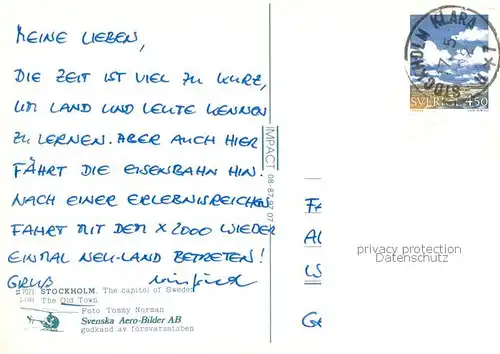 MEINE LIEBEN,
DIE ZEIT IST VIEL ZU KURZ,
UM LAND UND LEUTE KENNEN
ZU LERNEN. ABER AUCH HIER
FÄHRT DIE EISENBAHN HIN.
NACH EINER ERLEBNISREICHEN
FAHRT MIT DEM X2000 WIEDER
EINMAL NEU-LAND BETRETEN!
GRUß
STOCKHOLM. The capitol of Sweden
The Old Town
Foto Tommy Norman
Svenska Aero-Bilder AB
godkänd av försvarsstaben
IMPACT
STOCKHOLM KLARA
SVERIGE 450
privacy protection
DALSTAMPS.COM